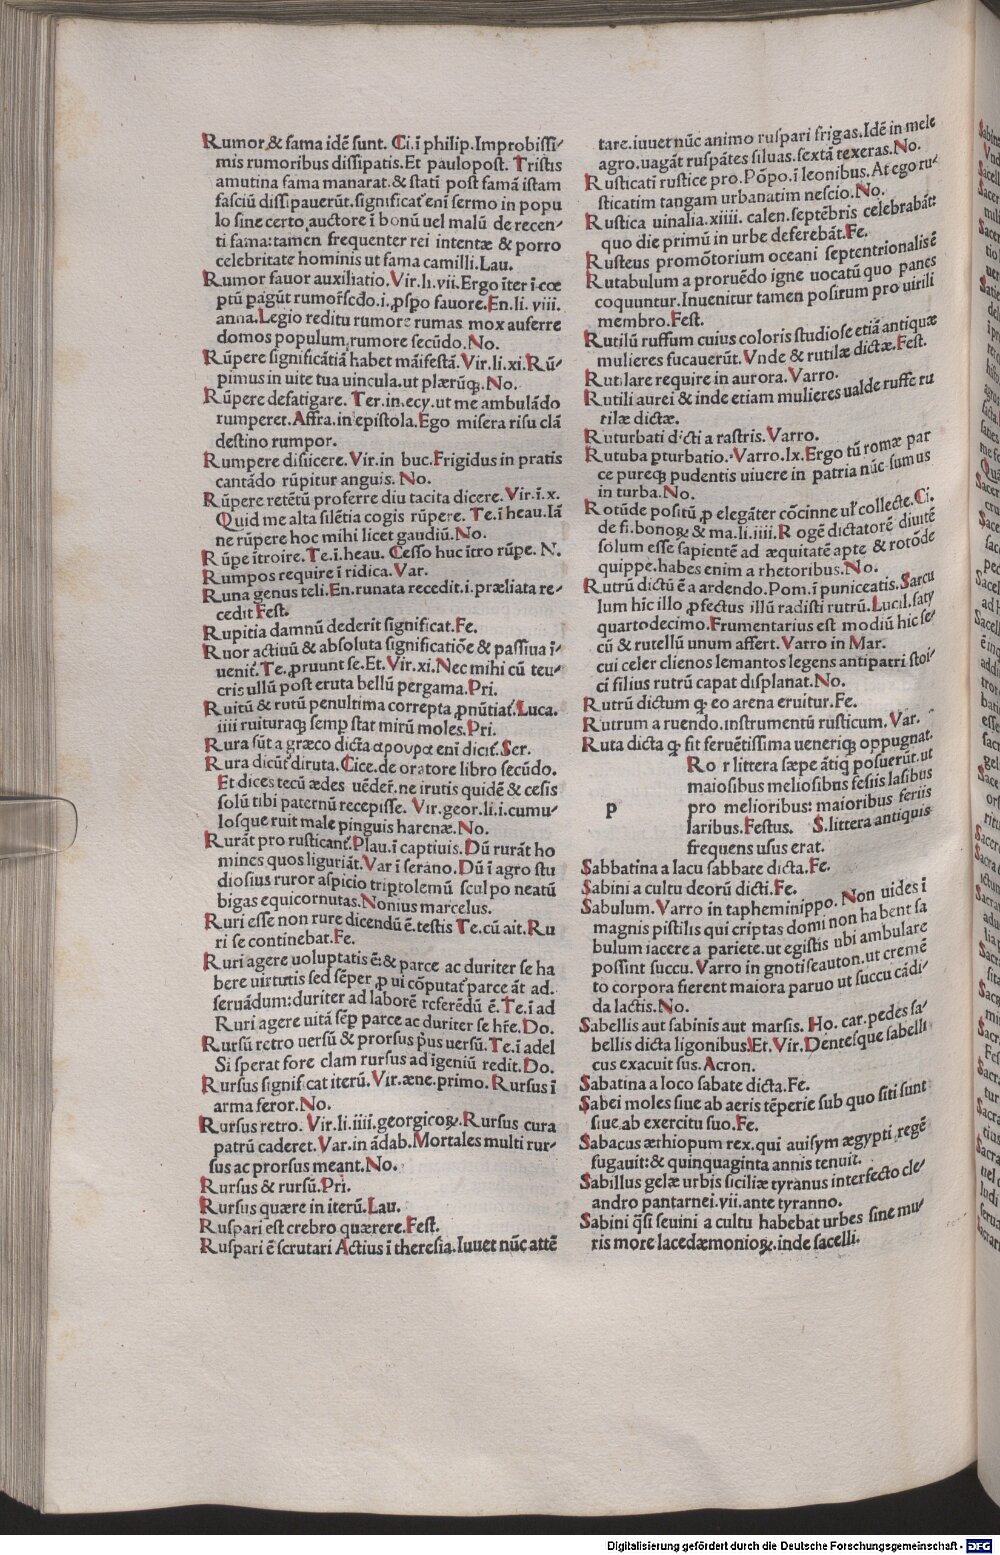 Rumor & fama idē sunt. Ci. ī philip. Improbissi-
mis rumoribus dissipatis. Et paulopost. Tristis
amutina fama manarat. & statī post famā istam
fasciū dissipauerūt. significat enī sermo in popu
lo sine certo auctore ī bonū uel malū de recen-
ti fama: tamen frequenter rei intentæ & porro
celebritate hominis ut fama camilli. Lau.
Rumor fauor auxiliatio. Vir. li. vii. Ergo īter ī cœ
ptū pagūt rumor̄ scdo. i. ꝓspo fauore. En. li. viii.
anna. Legio reditu rumore rumas mox auferre
domos populum rumore secūdo. No.
Rūpere significātiā habet māifestā. Vir. li. xi. Rū-
pimus in uite tua uincula. ut plærūqꝫ. No.
Rūpere defatigare. Ter. in. ecy. ut me ambulādo
rumperet. Affra. in epistola. Ego misera risu clā
destino rumpor.
Rumpere disiicere. Vir. in buc. Frigidus in pratis
cantādo rūpitur anguis. No.
Rūpere retētū proferre diu tacita dicere. Vir. ī. x.
Quid me alta silētia cogis rūpere. Te. ī heau. Iā
ne rūpere hoc mihi licet gaudiū. No.
Rūpe ītroire. Te. ī. heau. Cesso huc ītro rūpe. N.
Rumpos require ī ridica. Var.
Runa genus teli. En. runata recedit. i. præliata re-
cedit Fest.
Rupitia damnū dederit significat. Fe.
Ruor actiuū & absoluta significatiōe & passiua ī-
uenit̄. Te. ꝓruunt se. Et. Vir. xi. Nec mihi cū teu-
cris ullū post eruta bellū pergama. Pri.
Ruitū & rutū penultima correpta ꝓnūtiat̄. Luca.
iiii ruituraqꝫ semp stat mirū moles. Pri.
Rura sūt a græco dicta αρουρα enī dicit̄. Ser.
Rura dicūt̄ diruta. Cice. de oratore libro secūdo.
Et dices tecū ædes uēder̄. ne irutis quidē & cesis
solū tibi paternū recepisse. Vir. geor. li. i. cumu-
losque ruit male pinguis harenæ. No.
Rurāt pro rusticant̄. Plau. ī captiuis. Dū rurāt ho
mines quos liguriāt. Var ī serano. Dū ī agro stu
diosius ruror aspicio triptolemū sculpo neatū
bigas equicornutas. Nonius marcelus.
Ruri esse non rure dicendū ē. testis Te. cū ait. Ru
ri se continebat. Fe.
Ruri agere uoluptatis ē: & parce ac duriter se ha
bere uirtutis sed sēper ꝓ ui cōputat̄ parce āt ad.
seruādum: duriter ad laborē referēdū ē. Te. ī ad
Ruri agere uitā sēp parce ac duriter se hr̄e. Do.
Rursū retro uersū & prorsus pus uersū. Te. ī adel
Si sperat fore clam rursus ad igeniū redit. Do.
Rursus significat iterū. Vir. æne. primo. Rursus ī
arma feror. No.
Rursus retro. Vir. li. iiii. georgicoꝝ. Rursus cura
patrū caderet. Var. in ādab. Mortales multi rur-
sus ac prorsus meant. No.
Rursus & rursū. Pri.
Rursus quære in iterū. Lau.
Ruspari est crebro quærere. Fest.
Ruspari ē scrutari Actius ī theresia. Iuuet nūc attē
tare. iuuet nūc animo ruspari frigas. Idē in mele
agro. uagāt ruspātes siluas. sextā texeras. No.
Rusticati rustice pro. Pōpo. ī leonibus. At ego ru-
sticatim tangam urbanatim nescio. No.
Rustica uinalia. xiiii. calen. septēbris celebrabāt̄:
quo die primū in urbe deferebāt. Fe.
Rusteus promōtorium oceani septentrionalis ē
Rutabulum a proruēdo igne uocatū quo panes
coquuntur. Inuenitur tamen positum pro uirili
membro. Fest.
Rutilū ruffum cuius coloris studiose etiā antiquæ
mulieres fucauerūt. Vnde & rutilæ dictæ. Fest.
Rutilare require in aurora. Varro.
Rutili aurei & inde etiam mulieres ualde ruffe ru
tilæ dictæ.
Ruturbati dicti a rastris. Varro.
Rutuba pturbatio. Varro. lx. Ergo tū romæ par
ce pureqꝫ pudentis uiuere in patria nūc sumus
in turba. No.
Rotūde positū ꝓ elegāter cōcinne ul' collecte. Ci.
de fi. bonoꝝ & ma. li. iiii. Rogē dictatorē diuitē
solum esse sapientē ad æquitatē apte & rotōde
quippe. habes enim a rhetoribus. No.
Rutrū dictū ē a ardendo. Pom. ī puniceatis. Sarcu
lum hic illo ꝓfectus illū radisti rutrū. Lucil. saty
quartodecimo. Frumentarius est modiū hic se-
cū & rutellū unum affert. Varro in Mar.
cui celer clienos lemantos legens antipatri stoi-
ci filius rutrū capat displanat. No.
Rutrū dictum qꝫ eo arena eruitur. Fe.
Rutrum a ruendo. instrumentū rusticum. Var.
Ruta dicta qꝫ sit feruētissima ueneriqꝫ oppugnat.
Ro r littera sæpe ātiq posuerūt. ut
maiosibus meliosibus fesiis lasibus
p pro melioribus: maioribus feriis
laribus. Festus. S. littera antiquis
frequens usus erat.
Sabbatina a lacu sabbate dicta. Fe.
Sabini a cultu deorū dicti. Fe.
Sabulum. Varro in tapheminippo. Non uides ī
magnis pistilis qui criptas domi non habent sa
bulum iacere a pariete. ut egistis ubi ambulare
possint succu. Varro in gnotiseauton. ut cremē
to corpora fierent maiora paruo ut succu cādi-
da lactis. No.
Sabellis aut sabinis aut marsis. Ho. car. pedes sa-
bellis dicta ligonibus. Et. Vir. Dentesque sabelli
cus exacuit sus. Acron.
Sabatina a loco sabate dicta. Fe.
Sabei moles siue ab aeris tēperie sub quo siti sunt
siue ab exercitu suo. Fe.
Sabacus æthiopum rex. qui auisym ægypti regē
fugauit: & quinquaginta annis tenuit.
Sabillus gelæ urbis siciliæ tyranus interfecto cle-
andro pantarnei. vii. ante tyranno.
Sabini q̄si seuini a cultu habebat urbes sine mu-
ris more lacedæmonioꝝ. inde sacelli.
Digitalisierung gefördert durch die Deutsche Forschungsgemeinschaft - DFG